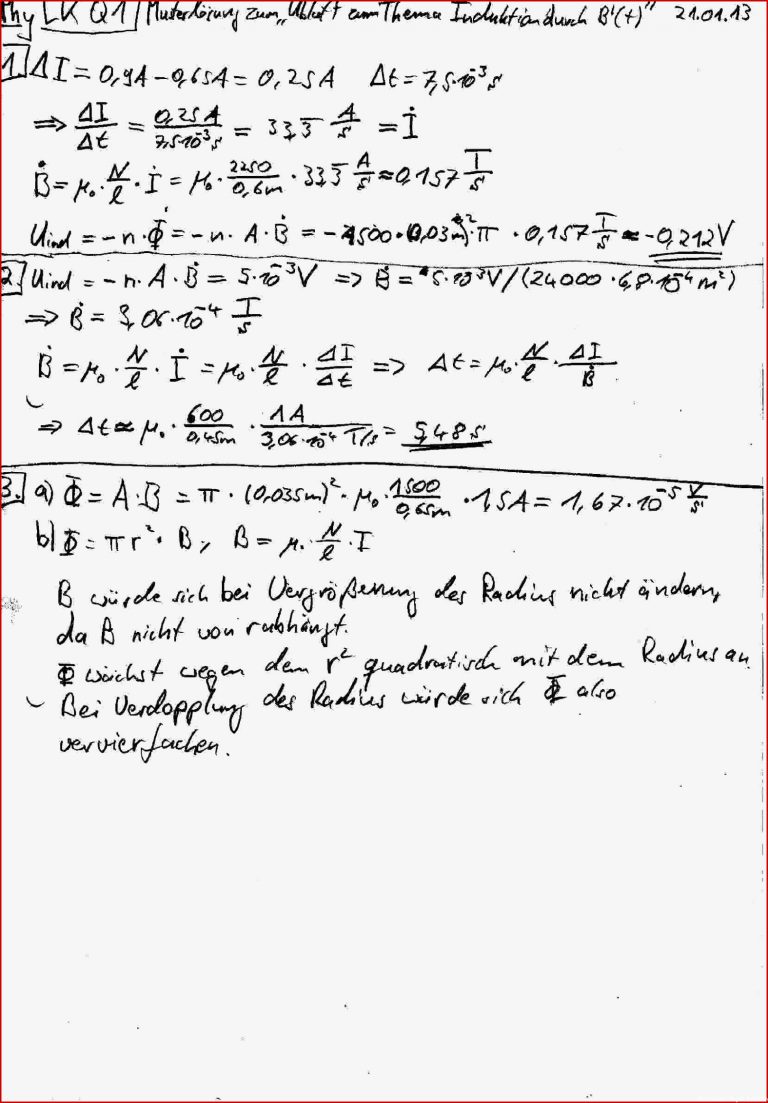 Phy LK Q1 Musterlösung zum „Ublatt zum Thema Induktion durch B'(t)" 21.01.13
1. ΔI = 0,9A - 0,65A = 0,25A Δt = 7,5·10⁻³s
⇒ ΔI/Δt = 0,25A/7,5·10⁻³s = 33,3̅ A/s = İ
Ḃ = μ₀ · N/l · İ = μ₀ · 2250/0,6m · 33,3̅ A/s ≈ 0,157 T/s
Uind = -n·Φ̇ = -n · A · Ḃ = -500 · (0,03m)²·π · 0,157 T/s ≈ -0,212V
2. Uind = -n · A · Ḃ = 5·10⁻³V ⇒ Ḃ = -5·10⁻³V/(24000 · 6,8·10⁻⁴m²)
⇒ Ḃ = 3,06·10⁻⁴ T/s
Ḃ = μ₀ · N/l · İ = μ₀ · N/l · ΔI/Δt ⇒ Δt = μ₀ · N/l · ΔI/Ḃ
⇒ Δt ≈ μ₀ · 600/0,45m · 1A/3,06·10⁻⁴ T/s = 5,48s
3. a) Φ = A · B = π · (0,035m)² · μ₀ · 1500/0,65m · 1,5A = 1,67·10⁻⁵ V/s
b) Φ = πr² · B, B = μ₀ · N/l · I
B würde sich bei Vergrößerung des Radius nicht ändern,
da B nicht von r abhängt.
Φ wächst wegen dem r² quadratisch mit dem Radius an.
Bei Verdopplung des Radius würde sich Φ also
vervierfachen.